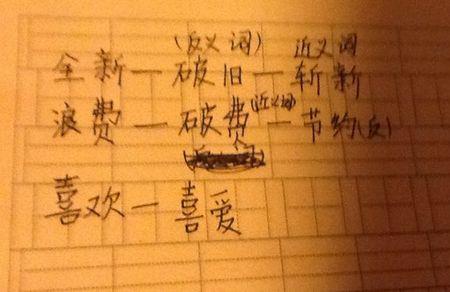 (反义词) 近义词
全新一破旧一斩新
浪费一破费(近义词)一节约(反)
喜欢一喜爱